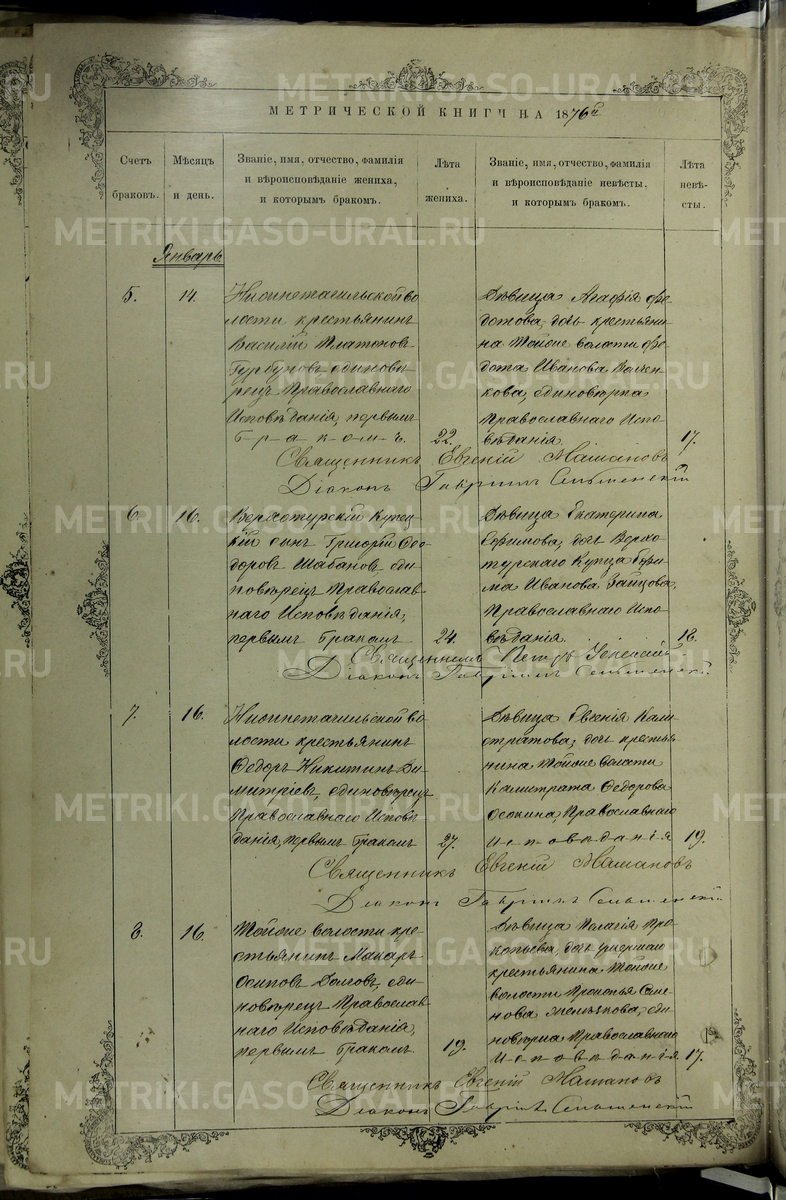 МЕТРИЧЕСКОЙ КНИГИ НА 1876й
Счетъ браковъ.
Мѣсяцъ и день.
Званіе, имя, отчество, фамилія
и вѣроисповѣданіе жениха,
и которымъ бракомъ.
Лѣта жениха.
Званіе, имя, отчество, фамилія
и вѣроисповѣданіе невѣсты,
и которымъ бракомъ.
Лѣта невѣсты.
Январь
5. 14.
Нижнетагильской во
лости крестьянинъ
Василій Платоновъ
единовѣ
рецъ Православнаго
Исповѣданія, первымъ
бракомъ. 22.
Дѣвица Агафія Фе
дотова, дочь крестьяни
на Тойже волости Фе
дота Иванова
единовѣрка
Православнаго Испо
вѣданія 17.
Священникъ Евгеній
Діаконъ Гавріилъ
6. 16.
Верхотурскій Купец
кій сынъ Григорій Ѳео
доровъ Шабановъ еди
новѣрецъ Православ
наго Исповѣданія,
первымъ бракомъ 24.
Дѣвица Екатерина
Ефимова, дочь Верхо
турскаго Купца Ефи
ма Иванова Зайцова,
Православнаго Испо
вѣданія 18.
Священникъ Петръ
Діаконъ Гавріилъ
7. 16.
Нижнетагильской во
лости крестьянинъ
Ѳедоръ Никитинъ Ди
митріевъ, единовѣрецъ
Православнаго Исповѣ
данія, первымъ бракомъ 27.
Дѣвица Евгенія Кали
стратова, дочь крестья
нина Тойже волости
Калистрата Ѳедорова
Осокина, Православнаго
Исповѣданія 19.
Священникъ Евгеній
Діаконъ Гавріилъ
8. 16.
Тойже волости кре
стьянинъ Макаръ
Осиповъ Долговъ, еди
новѣрецъ Православ
наго Исповѣданія,
первымъ бракомъ 19.
Дѣвица Пелагія Про
копьева, дочь умершаго
крестьянина Тойже
волости Прокопья Семе
нова еди
новѣрка Православнаго
Исповѣданія 17.
Священникъ Евгеній
Діаконъ Гавріилъ
METRIKI.GASO-URAL.RU